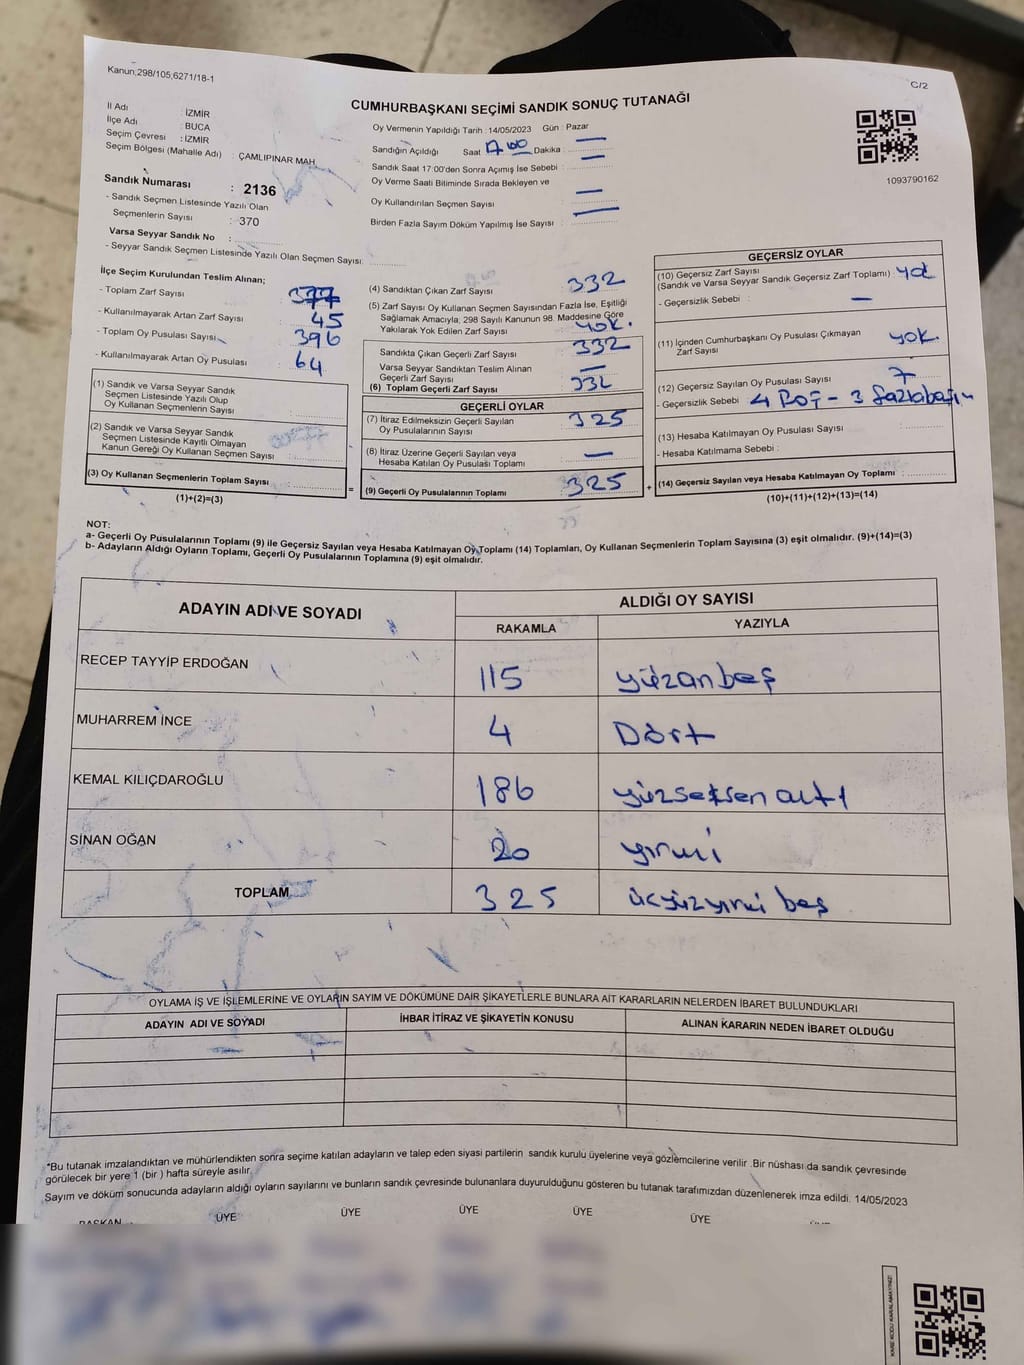 Kanun;298/105,6271/18-1
C/2
CUMHURBAŞKANI SEÇİMİ SANDIK SONUÇ TUTANAĞI
İl Adı : İZMİR
İlçe Adı : BUCA
Seçim Çevresi : İZMİR
Seçim Bölgesi (Mahalle Adı) : ÇAMLIPINAR MAH.
Sandık Numarası : 2136
- Sandık Seçmen Listesinde Yazılı Olan
Seçmenlerin Sayısı : 370
Varsa Seyyar Sandık No :
- Seyyar Sandık Seçmen Listesinde Yazılı Olan Seçmen Sayısı:
Oy Vermenin Yapıldığı Tarih :14/05/2023 Gün : Pazar
Sandığın Açıldığı Saat 17 00 Dakika : —
Sandık Saat 17:00'den Sonra Açımış İse Sebebi : —
Oy Verme Saati Bitiminde Sırada Bekleyen ve
Oy Kullandırılan Seçmen Sayısı : —
Birden Fazla Sayım Döküm Yapılmış İse Sayısı : —
1093790162
İlçe Seçim Kurulundan Teslim Alınan;
- Toplam Zarf Sayısı 377
- Kullanılmayarak Artan Zarf Sayısı : 45
- Toplam Oy Pusulası Sayısı 396
- Kullanılmayarak Artan Oy Pusulası : 64
(1) Sandık ve Varsa Seyyar Sandık
Seçmen Listesinde Yazılı Olup
Oy Kullanan Seçmenlerin Sayısı :
(2) Sandık ve Varsa Seyyar Sandık
Seçmen Listesinde Kayıtlı Olmayan
Kanun Gereği Oy Kullanan Seçmen Sayısı :
(3) Oy Kullanan Seçmenlerin Toplam Sayısı : =
(1)+(2)=(3)
(4) Sandıktan Çıkan Zarf Sayısı : 332
(5) Zarf Sayısı Oy Kullanan Seçmen Sayısından Fazla İse, Eşitliği
Sağlamak Amacıyla, 298 Sayılı Kanunun 98. Maddesine Göre
Yakılarak Yok Edilen Zarf Sayısı : yok.
Sandıkta Çıkan Geçerli Zarf Sayısı : 332
Varsa Seyyar Sandıktan Teslim Alınan
Geçerli Zarf Sayısı : —
(6) Toplam Geçerli Zarf Sayısı : 332
GEÇERLİ OYLAR
(7) İtiraz Edilmeksizin Geçerli Sayılan
Oy Pusulalarının Sayısı : 325
(8) İtiraz Üzerine Geçerli Sayılan veya
Hesaba Katılan Oy Pusulası Toplamı : —
(9) Geçerli Oy Pusulalarının Toplamı : 325 +
GEÇERSİZ OYLAR
(10) Geçersiz Zarf Sayısı
(Sandık ve Varsa Seyyar Sandık Geçersiz Zarf Toplamı) : yok
- Geçersizlik Sebebi : —
(11) İçinden Cumhurbaşkanı Oy Pusulası Çıkmayan
Zarf Sayısı : yok.
(12) Geçersiz Sayılan Oy Pusulası Sayısı : 7
- Geçersizlik Sebebi 4 Boş - 3 fazlabasım
(13) Hesaba Katılmayan Oy Pusulası Sayısı :
- Hesaba Katılmama Sebebi :
(14) Geçersiz Sayılan veya Hesaba Katılmayan Oy Toplamı :
(10)+(11)+(12)+(13)=(14)
NOT:
a- Geçerli Oy Pusulalarının Toplamı (9) ile Geçersiz Sayılan veya Hesaba Katılmayan Oy Toplamı (14) Toplamları, Oy Kullanan Seçmenlerin Toplam Sayısına (3) eşit olmalıdır. (9)+(14)=(3)
b- Adayların Aldığı Oyların Toplamı, Geçerli Oy Pusulalarının Toplamına (9) eşit olmalıdır.
ADAYIN ADI VE SOYADI ALDIĞI OY SAYISI
RAKAMLA YAZIYLA
RECEP TAYYİP ERDOĞAN 115 yüzonbeş
MUHARREM İNCE 4 Dört
KEMAL KILIÇDAROĞLU 186 yüzseksen altı
SİNAN OĞAN 20 yirmi
TOPLAM 325 üçyüzyirmi beş
OYLAMA İŞ VE İŞLEMLERİNE VE OYLARIN SAYIM VE DÖKÜMÜNE DAİR ŞİKAYETLERLE BUNLARA AİT KARARLARIN NELERDEN İBARET BULUNDUKLARI
ADAYIN ADI VE SOYADI İHBAR İTİRAZ VE ŞİKAYETİN KONUSU ALINAN KARARIN NEDEN İBARET OLDUĞU
*Bu tutanak imzalandıktan ve mühürlendikten sonra seçime katılan adayların ve talep eden siyasi partilerin sandık kurulu üyelerine veya gözlemcilerine verilir .Bir nüshası da sandık çevresinde
görülecek bir yere 1 (bir ) hafta süreyle asılır.
Sayım ve döküm sonucunda adayların aldığı oyların sayılarını ve bunların sandık çevresinde bulunanlara duyurulduğunu gösteren bu tutanak tarafımızdan düzenlenerek imza edildi. 14/05/2023
BAŞKAN ÜYE ÜYE ÜYE ÜYE ÜYE ÜYE
KARE KODU KARALAMAYINIZ!